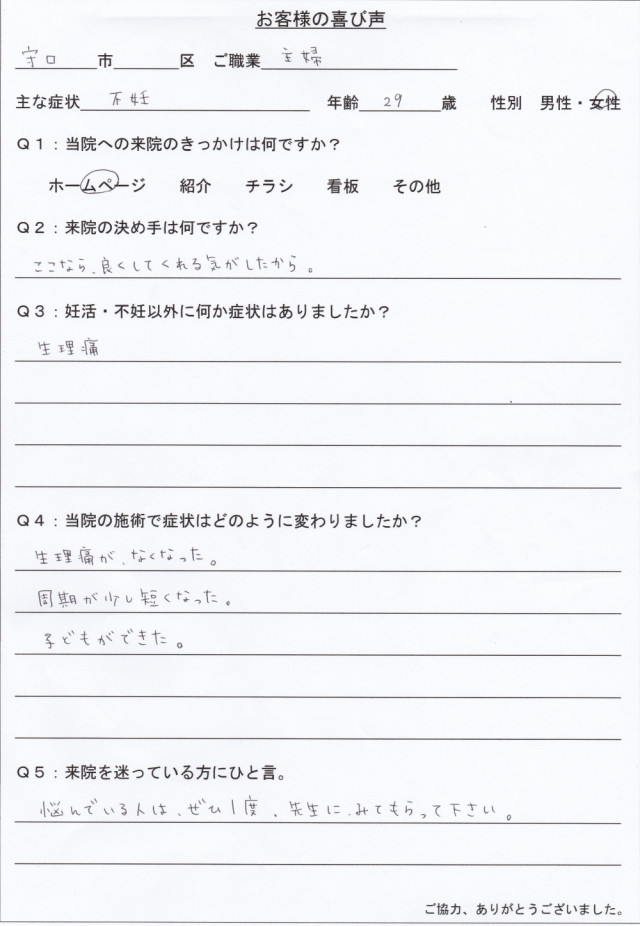 お客様の喜び声
守口市 区 ご職業 主婦
主な症状 不妊 年齢 29 歳 性別 男性・女性
Q1：当院への来院のきっかけは何ですか？
ホームページ 紹介 チラシ 看板 その他
Q2：来院の決め手は何ですか？
ここなら、良くしてくれる気がしたから。
Q3：妊活・不妊以外に何か症状はありましたか？
生理痛
Q4：当院の施術で症状はどのように変わりましたか？
生理痛が、なくなった。
周期が少し短くなった。
子どもができた。
Q5：来院を迷っている方にひと言。
悩んでいる人は、ぜひ1度、先生に、みてもらって下さい。
ご協力、ありがとうございました。